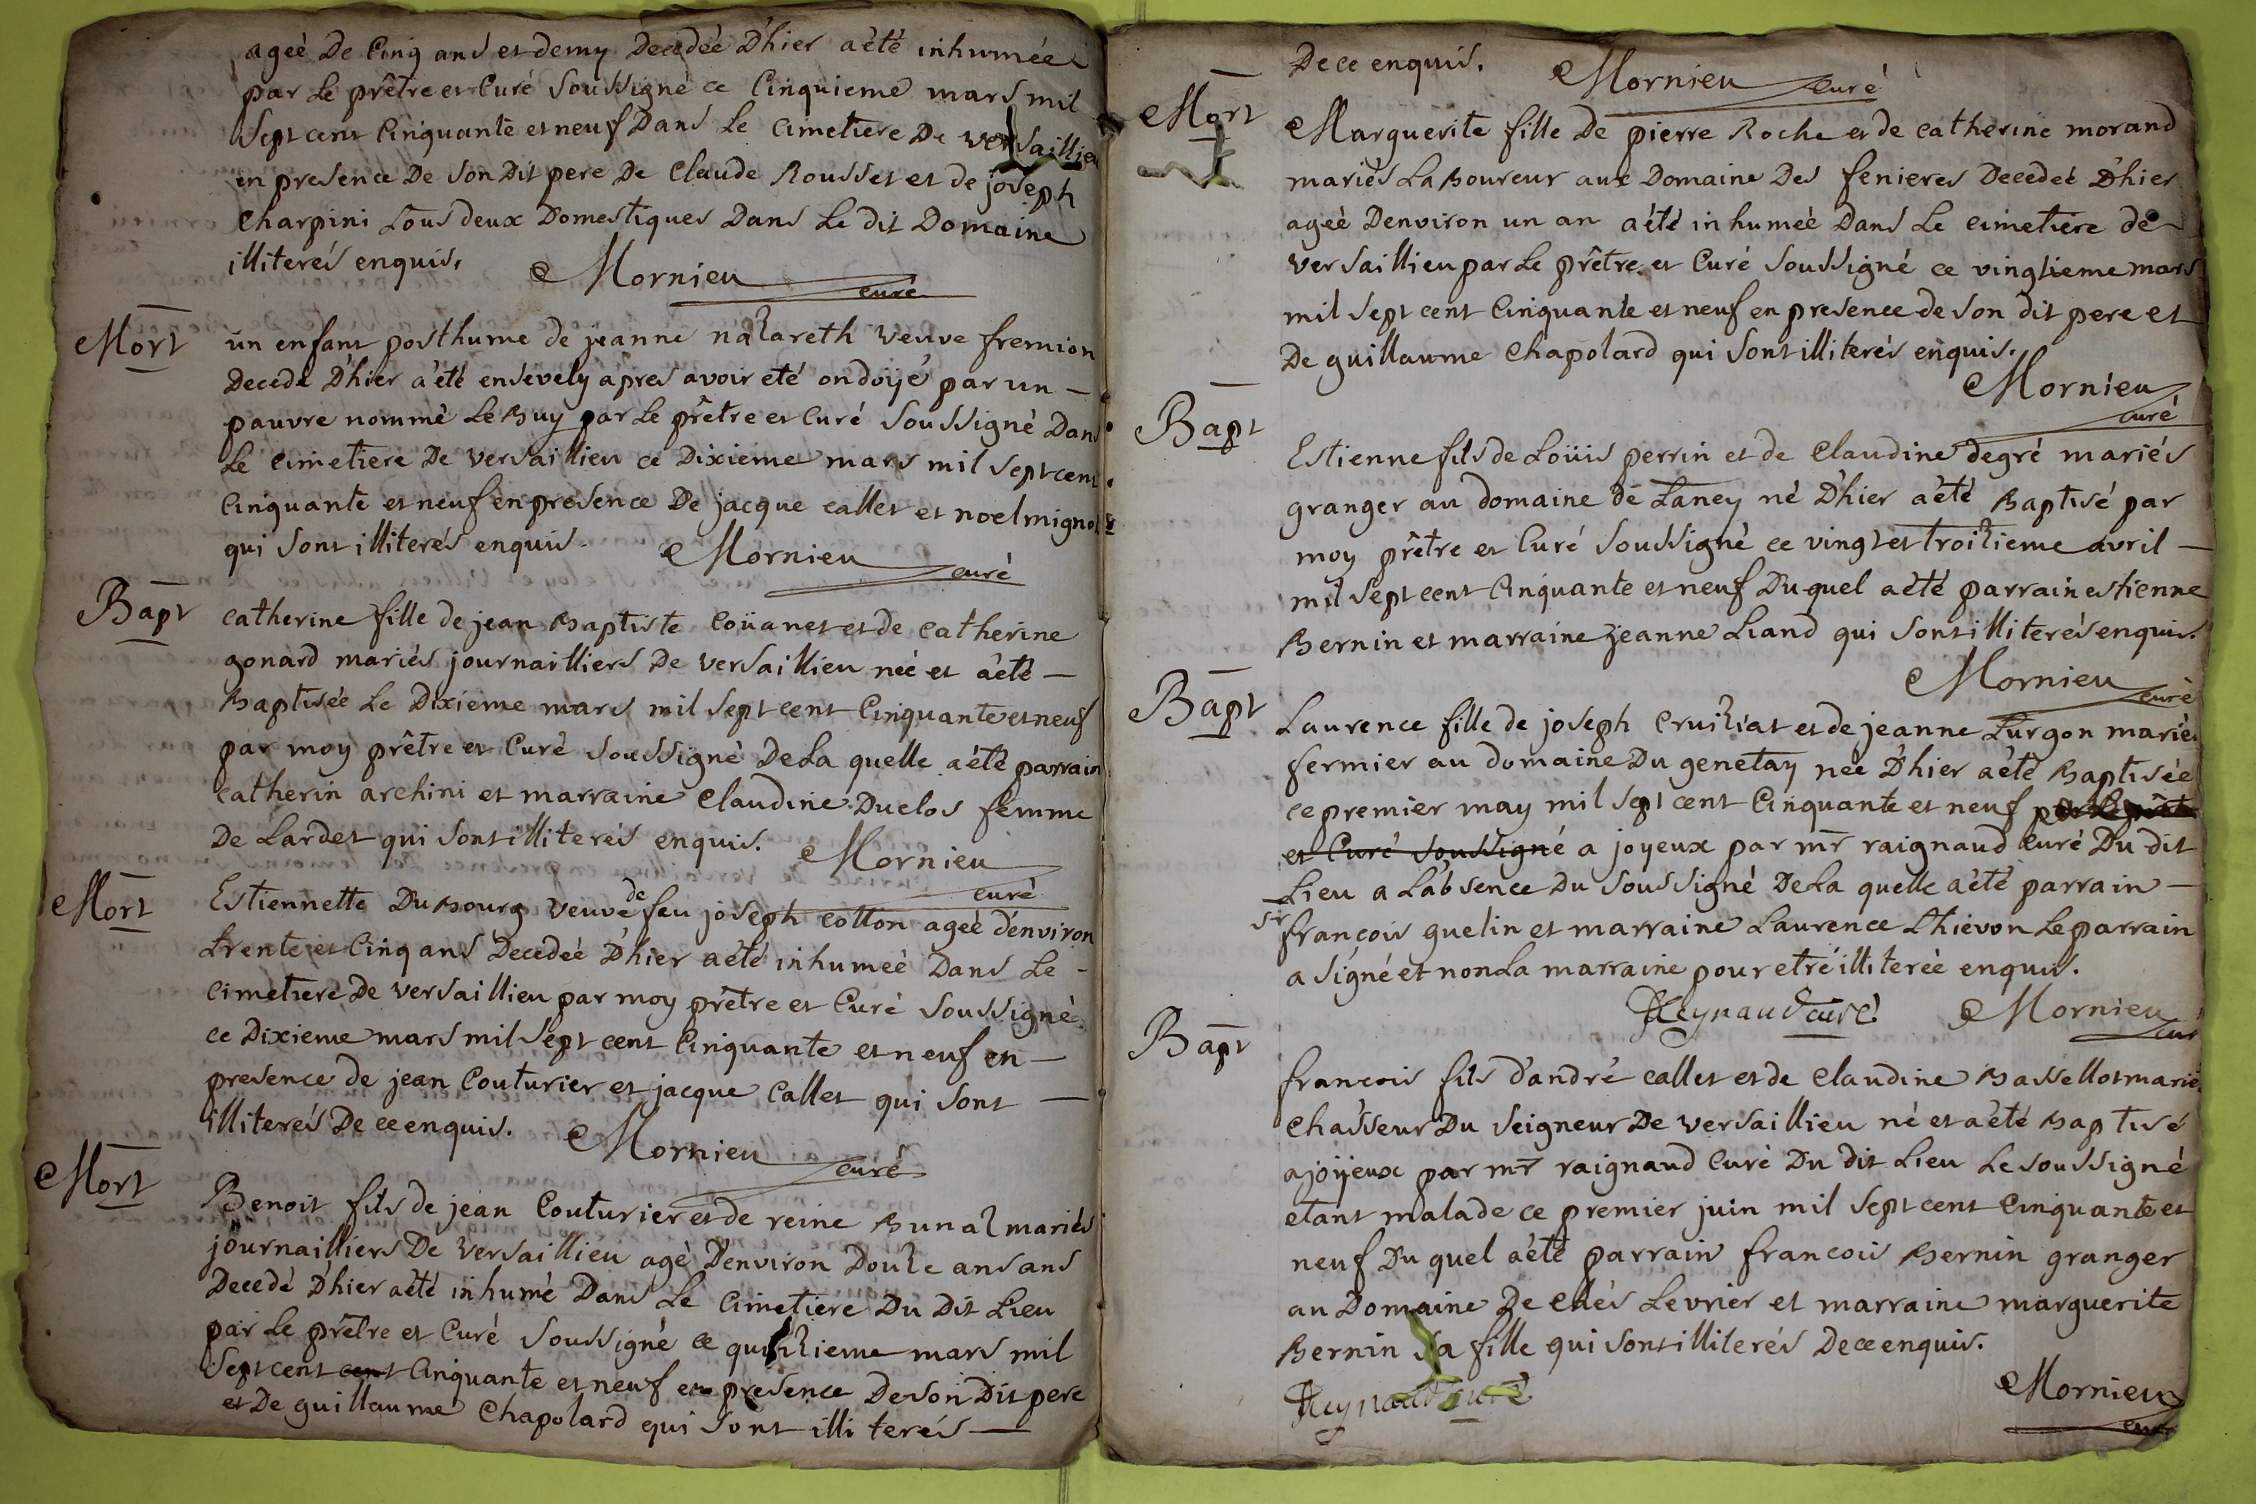 ageé De Cinq ans et demy Decedeé D'hier a été inhumée
par Le prêtre et Curé Soussigné ce Cinquieme mars mil
Sept cent Cinquante et neuf Dans Le Cimetiere De Versaillieu
en presence De Son Dit pere De Claude Rousset et de joseph
Charpini tous deux Domestiques Dans Le dit Domaine
illiterés enquis,
Mornieu
curé
Mort
un enfant posthume de jeanne nazareth Veuve fremion
Decedé D'hier a été ensevely apres avoir eté ondoÿé par un
pauvre nommé Le Buy par Le prêtre et Curé Soussigné Dans
Le Cimetiere De Versaillieu ce Dixieme mars mil Sept cent
Cinquante et neuf en presence De jacque callet et noel mignot
qui Sont illiterés enquis.
Mornieu
curé
Bapt
catherine fille de jean Baptiste Coüanet et de catherine
gonard mariés journailliers De Versaillieu neé et a été
Baptisée Le Dixieme mars mil Sept cent Cinquante et neuf
par moy prêtre et Curé Soussigné De La quelle a été parrain
catherin archini et marraine Claudine Duclos femme
De Lardet qui Sont illiterés enquis.
Mornieu
curé
Mort
Estiennette Dubourg Veuve de feu joseph cotton ageé d'environ
trente et Cinq ans Decedeé D'hier a été inhumeé Dans Le
Cimetiere De Versaillieu par moy prêtre et Curé Soussigné
ce Dixieme mars mil Sept cent Cinquante et neuf en
presence de jean Couturier et jacque Callet qui Sont
illiterés De ce enquis.
Mornieu
curé
Mort
Benoit fils de jean Couturier et de reine Bunaz mariés
journailliers De Versaillieu agé D'environ Douze ans ans
Decedé D'hier a été inhumé Dans Le Cimetiere Du Dit Lieu
par Le prêtre et Curé Soussigné ce quinzieme mars mil
Sept cent cent Cinquante et neuf en presence De son Dit pere
et De guillaume Chapolard qui Sont illiterés
De ce enquis.
Mornieu
curé
Mort
Marguerite fille De pierre Roche et de catherine morand
mariés Laboureur aux Domaine Des fenieres Decedeé D'hier
ageé D'environ un an a été inhumeé Dans Le Cimetiere de
Versaillieu par Le prêtre et Curé Soussigné ce vingtieme mars
mil Sept cent Cinquante et neuf en presence de Son dit pere et
De guillaume Chapolard qui Sont illiterés enquis.
Mornieu
curé
Bapt
Estienne fils de Loüis perrin et de Claudine degré mariés
granger au domaine de Laney né D'hier a été Baptisé par
moy prêtre et Curé Soussigné ce vingt et troizieme avril
mil Sept cent Cinquante et neuf Du quel a été parrain estienne
Bernin et marraine jeanne Liand qui Sont illiterés enquis.
Mornieu
curé
Bapt
Laurence fille de joseph Cruiziat et de jeanne Turgon mariés
fermier au domaine Du genetay née D'hier a été Baptisée
ce premier may mil Sept cent Cinquante et neuf par Le prêtre
et Curé Soussigné a joyeux par mr raignaud Curé Du dit
Lieu a L'absence Du Soussigné De La quelle a été parrain
sr françois guelin et marraine Laurence Thievon Le parrain
a Signé et non La marraine pour etre illitereé enquis.
Reynaud curé
Mornieu
curé
Bapt
francois fils d'andré callet et de Claudine Bassellot mariés
Chasseur Du Seigneur De Versaillieu né et a été Baptisé
a joÿeux par mr raignaud Curé Du dit Lieu Le Soussigné
etant malade ce premier juin mil Sept cent Cinquante et
neuf Du quel a été parrain francois Bernin granger
au Domaine De chés Levrier et marraine marguerite
Bernin Sa fille qui Sont illiterés De ce enquis.
Reynaud curé
Mornieu
curé